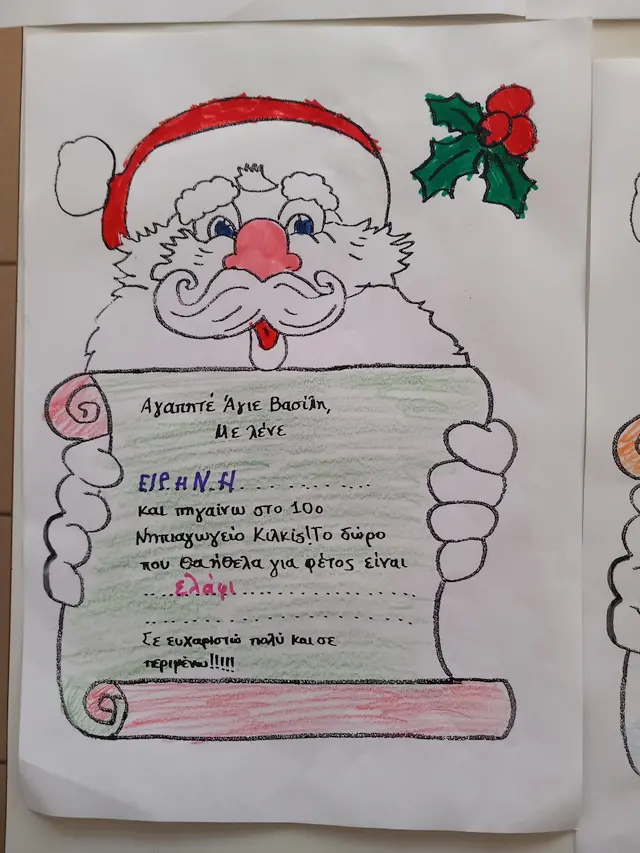 Αγαπητέ Άγιε Βασίλη,
Με λένε
ΕΙΡΗΝΗ
και πηγαίνω στο 10ο
Νηπιαγωγείο Κιλκίς!Το δώρο
που θα ήθελα για φέτος είναι
ελάφι
Σε ευχαριστώ πολύ και σε
περιμένω!!!!!